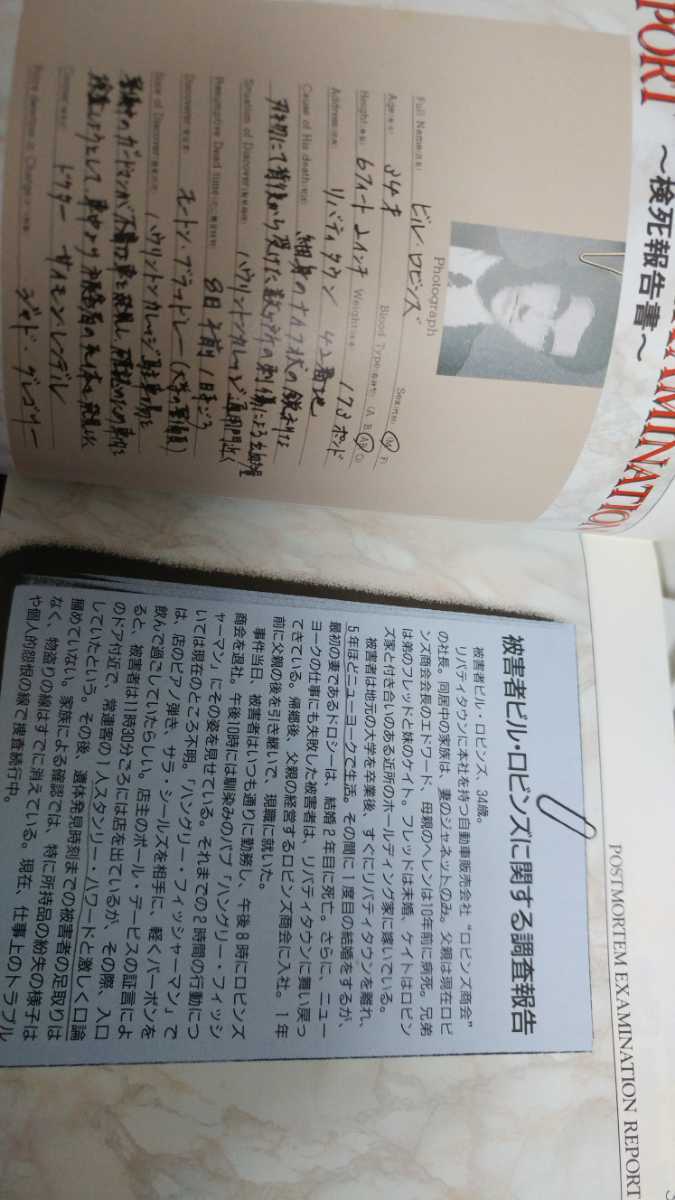 PORT
AMINATION
～検死報告書～
Photograph
Full Name(氏名) ビル・ロビンズ
Sex(性別) (M F)
Age(年齢) 34才
Blood Type(血液型) (A B AB O)
Height(身長) 6フィート2インチ Weight(体重) 172ポンド
Address(住所) リバティタウン 42番地
Cause of His death(死因) 細身のナイフ状の鋭利な
刃物にて背後から受けた数か所の刺傷による出血多量
Situation of Discover ハウリントンカレッジ通用門近く
Presumptive Dead time 8日午前1日ごろ
Discoverer モートン・ブラッドレー(大学の警備員)
State of Discover ハウリントンカレッジ駐車場を
警備中のガードマンが不審な車を発見し、
ドクター サイモン・レンデル
ジャド・グレゴリー
POSTMORTEM EXAMINATION REPORT
被害者ビル・ロビンズに関する調査報告
被害者ビル・ロビンズ、34歳。
リバティタウンに本社を持つ自動車販売会社“ロビンズ商会”
の社長。同居中の家族は、妻のジャネットのみ。父親は現在ロビ
ンズ商会会長のエドワード、母親のヘレンは10年前に病死。兄弟
は弟のフレッドと妹のケイト。フレッドは未婚、ケイトはロビン
ズ家と付き合いのある近所のホールディング家に嫁いでいる。
被害者は地元の大学を卒業後、すぐにリバティタウンを離れ、
5年ほどニューヨークで生活。その間に1度目の結婚をするが、
最初の妻であるドロシーは、結婚2年目に死亡。さらに、ニュー
ヨークの仕事にも失敗した被害者は、リバティタウンに舞い戻っ
てきている。帰郷後、父親の経営するロビンズ商会に入社。1年
前に父親の後を引き継いで、現職に就いた。
事件当日、被害者はいつも通りに勤務し、午後8時にロビンズ
商会を退社。午後10時には馴染みのパブ「ハングリー・フィッシ
ャーマン」にその姿を見せている。それまでの2時間の行動につ
いては現在のところ不明。「ハングリー・フィッシャーマン」で
は、店のピアノ弾き、サラ・シールズを相手に、軽くバーボンを
飲んで過ごしていたらしい。店主のポール・デービスの証言によ
ると、被害者は11時30分ごろには店を出ているが、その際、入口
のドア付近で、常連客の1人スタンリー・ハワードと激しく口論
していたという。その後、遺体発見時刻までの被害者の足取りは
掴めていない。家族による確認では、特に所持品の紛失の様子は
なく、物盗りの線はすでに消えている。現在、仕事上のトラブル
や個人的怨恨の線で捜査続行中。